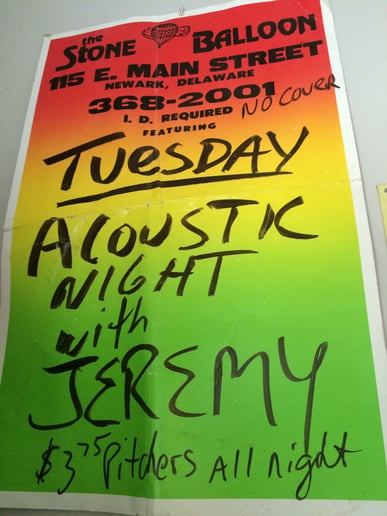 the
STONE BALLOON
115 E. MAIN STREET
NEWARK, DELAWARE
368-2001
I. D. REQUIRED NO COVER
FEATURING
TUESDAY
ACOUSTIC
NIGHT
with
JEREMY
$3.75 Pitchers All night